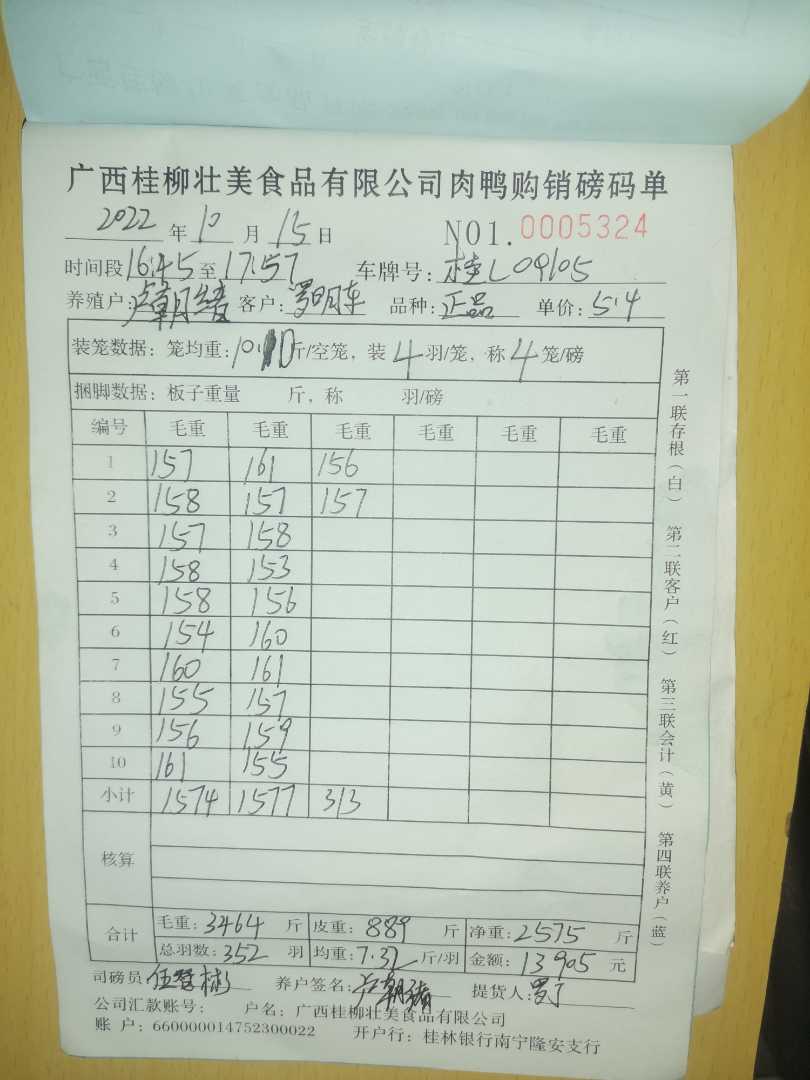 广西桂柳壮美食品有限公司肉鸭购销磅码单
2022年10月15日 NO1.0005324
时间段16:45至17:57 车牌号:桂L09105
养殖户: 客户: 品种:正品 单价:5.4
装笼数据:笼均重: 斤/空笼,装4羽/笼,称4笼/磅
捆脚数据:板子重量 斤,称 羽/磅
编号 毛重 毛重 毛重 毛重 毛重 毛重
1 157 161 156
2 158 157 157
3 157 158
4 158 153
5 158 156
6 154 160
7 160 161
8 155 157
9 156 159
10 161 155
小计 1574 1577 313
核算
合计 毛重:3464斤 皮重:889斤 净重:2575斤
总羽数:352羽 均重:7.32斤/羽 金额:13905元
司磅员 养户签名: 提货人:
公司汇款账号: 户名:广西桂柳壮美食品有限公司
账 户:660000014752300022 开户行:桂林银行南宁隆安支行
第一联存根(白) 第二联客户(红) 第三联会计(黄) 第四联养户(蓝)